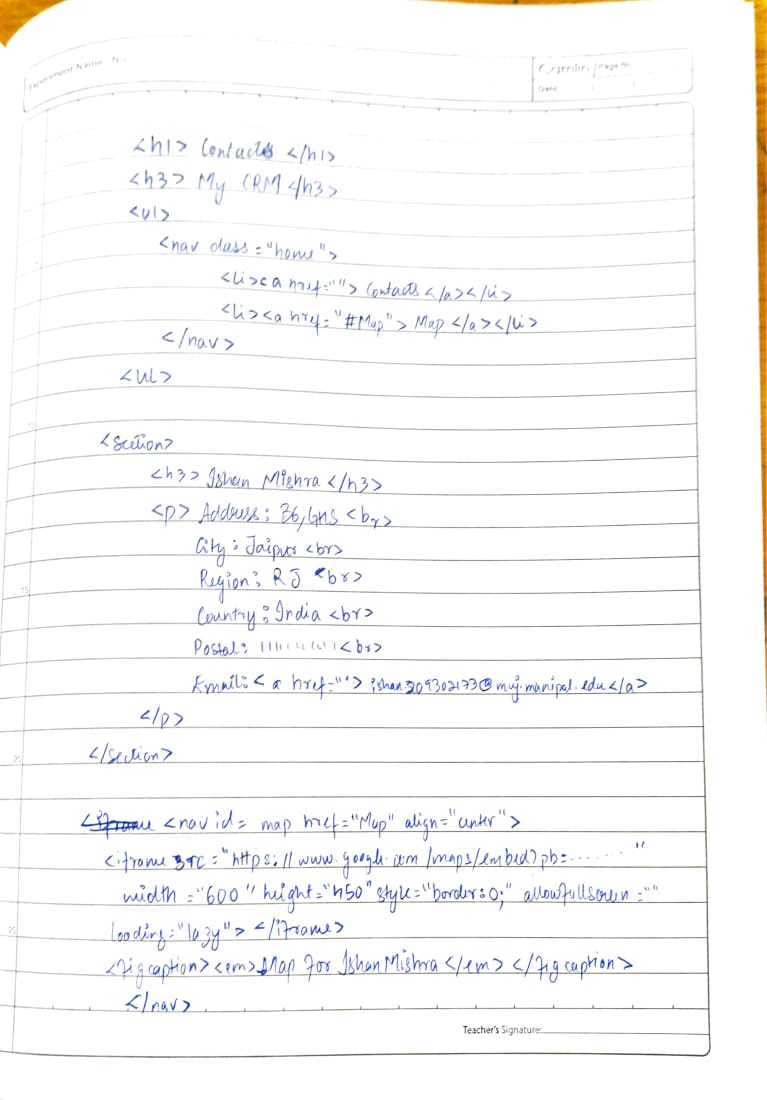 Experiment Name : No.
Page No.
Date
<h1> Contacts </h1>
<h3> My CRM </h3>
<ul>
<nav class = "home">
<li><a href=""> Contacts </a></li>
<li><a href="#Map"> Map </a></li>
</nav>
<UL>
<Section>
<h3> Ishan Mishra </h3>
<p> Address : B6, GHS <br>
City : Jaipur <br>
Region : RJ <br>
Country : India <br>
Postal : <br>
Email : < a href=""> ishan.209302173@muj.manipal.edu </a>
</p>
</Section>
<nav id = map href="Map" align="center">
<iframe src = "https://www.google.com/maps/embed?pb=........"
width = "600" height="450" style="border:0;" allowfullscreen =""
loading="lazy"> </iframe>
<figcaption><em> Map for Ishan Mishra </em> </figcaption>
</nav>
Teacher's Signature: